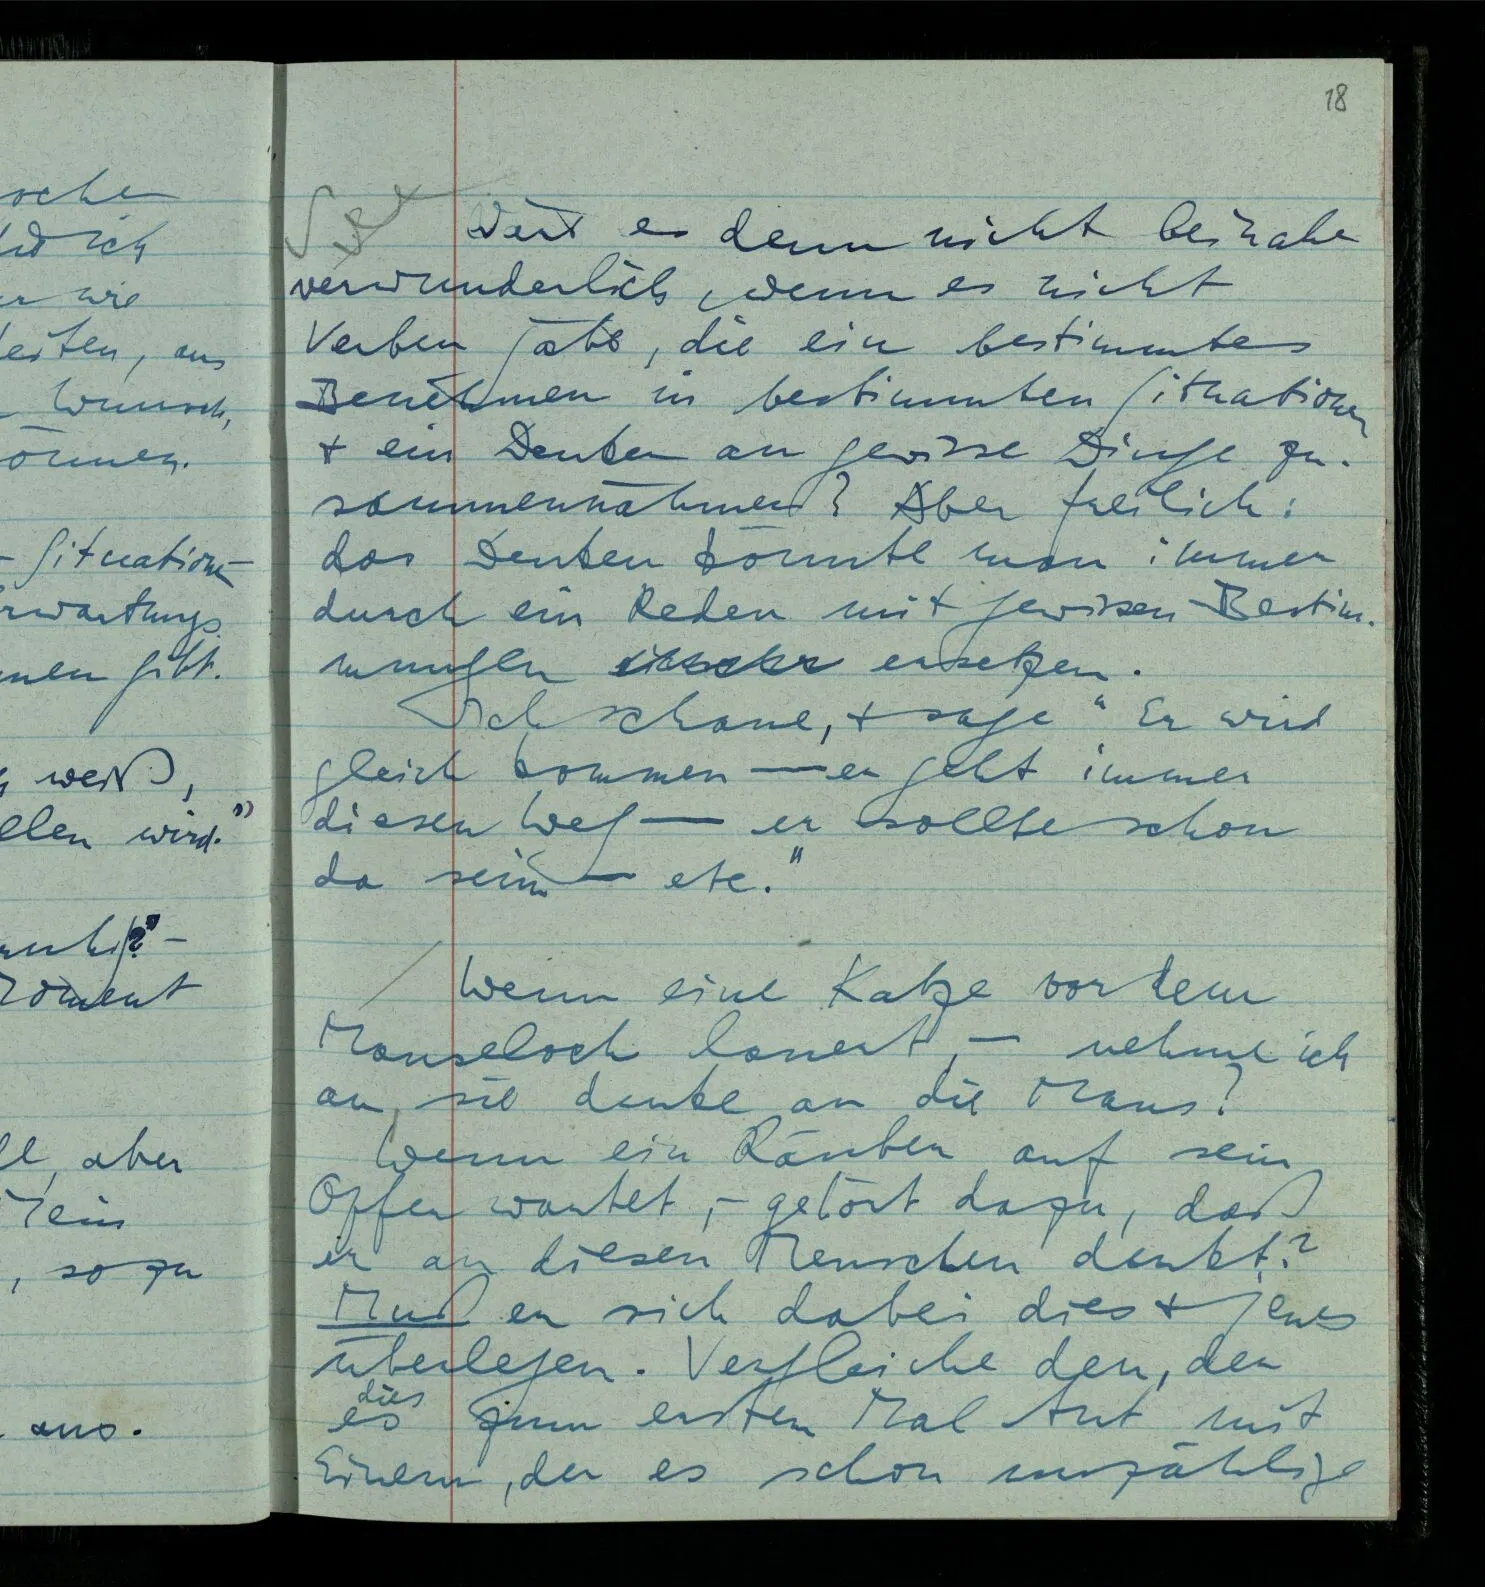 18
oche
ich
wie
eiten, aus
Wunsch,
önnen.
Situation
rwartungs
men gibt.
weiß,
llen wird."
Moment
aber
Mein
, so zu
aus.
Wäre es denn nicht beinahe
verwunderlich, wenn es nicht
Verben gäbe, die ein bestimmtes
Benehmen in bestimmten Situationen
+ ein Denken an gewisse Dinge zu-
sammennähmen? Aber freilich:
das Denken könnte man immer
durch ein Reden mit gewissen Bestim-
mungen ersetzen.
Ich schaue, + sage "Er wird
gleich kommen — er geht immer
diesen Weg — er sollte schon
da sein — etc."
Wenn eine Katze vor dem
Mauseloch lauert, — nehme ich
an, sie denke an die Maus?
Wenn ein Räuber auf sein
Opfer wartet, – gehört dazu, daß
er an diesen Menschen denkt?
Muß er sich dabei dies + jenes
überlegen. Vergleiche den, der
dies
es zum ersten Mal tut mit
Einem, der es schon unzählige